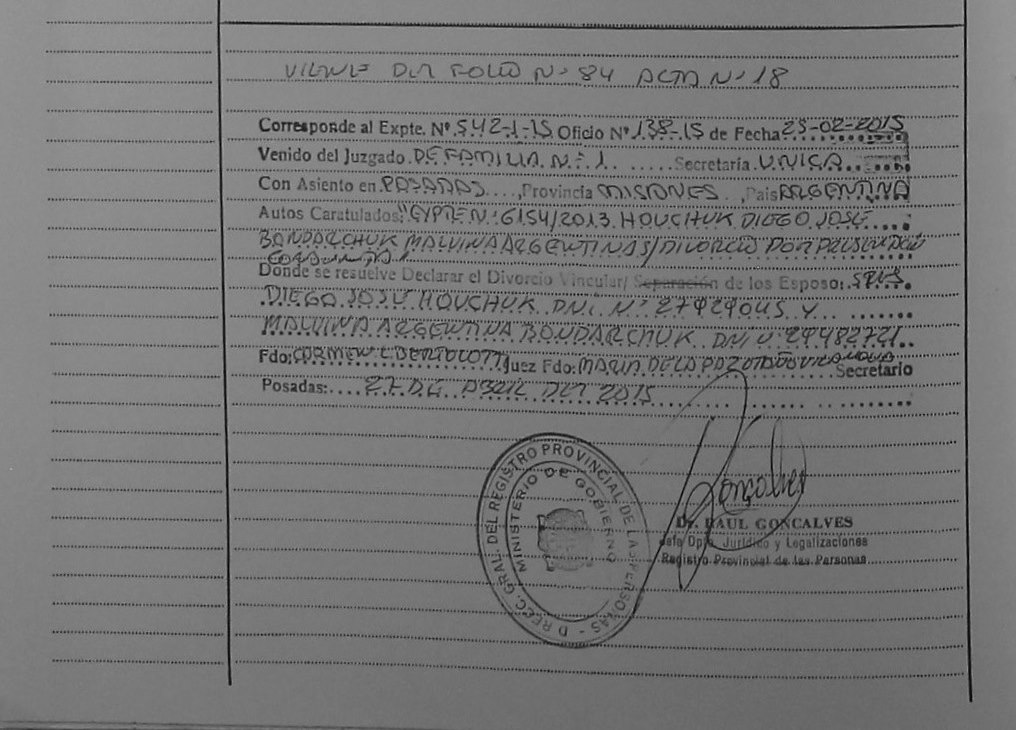 VIENE DEL FOLIO Nº 84 ACTA Nº 18
Corresponde al Expte. Nº 542-1-15 Oficio Nº 138-15 de Fecha 25-02-2015
Venido del Juzgado DE FAMILIA Nº 1 Secretaría UNICA
Con Asiento en POSADAS, Provincia MISIONES, Pais ARGENTINA
Autos Caratulados: "EXPTE Nº 6154/2013 HOUCHUK DIEGO JOSE
BONDARCHUK MALVINA ARGENTINA S/DIVORCIO POR PRESENTACIÓN
CONJUNTA"
Donde se resuelve Declarar el Divorcio Vincular/ Separación de los Esposo: SRES.
DIEGO JOSE HOUCHUK DNI Nº 27929045 Y
MALVINA ARGENTINA BONDARCHUK DNI Nº 29482721
Fdo: CARMEN L BERTOLOTTI Juez Fdo: MARIA DE LA PAZ Secretario
Posadas: 27 DE ABRIL DEL 2015
Goncalves
Dr. RAUL GONCALVES
Jefe Dpto. Jurídico y Legalizaciones
Registro Provincial de las Personas
DIRECC. GRAL. DEL REGISTRO PROVINCIAL DE LAS PERSONAS
MINISTERIO DE GOBIERNO